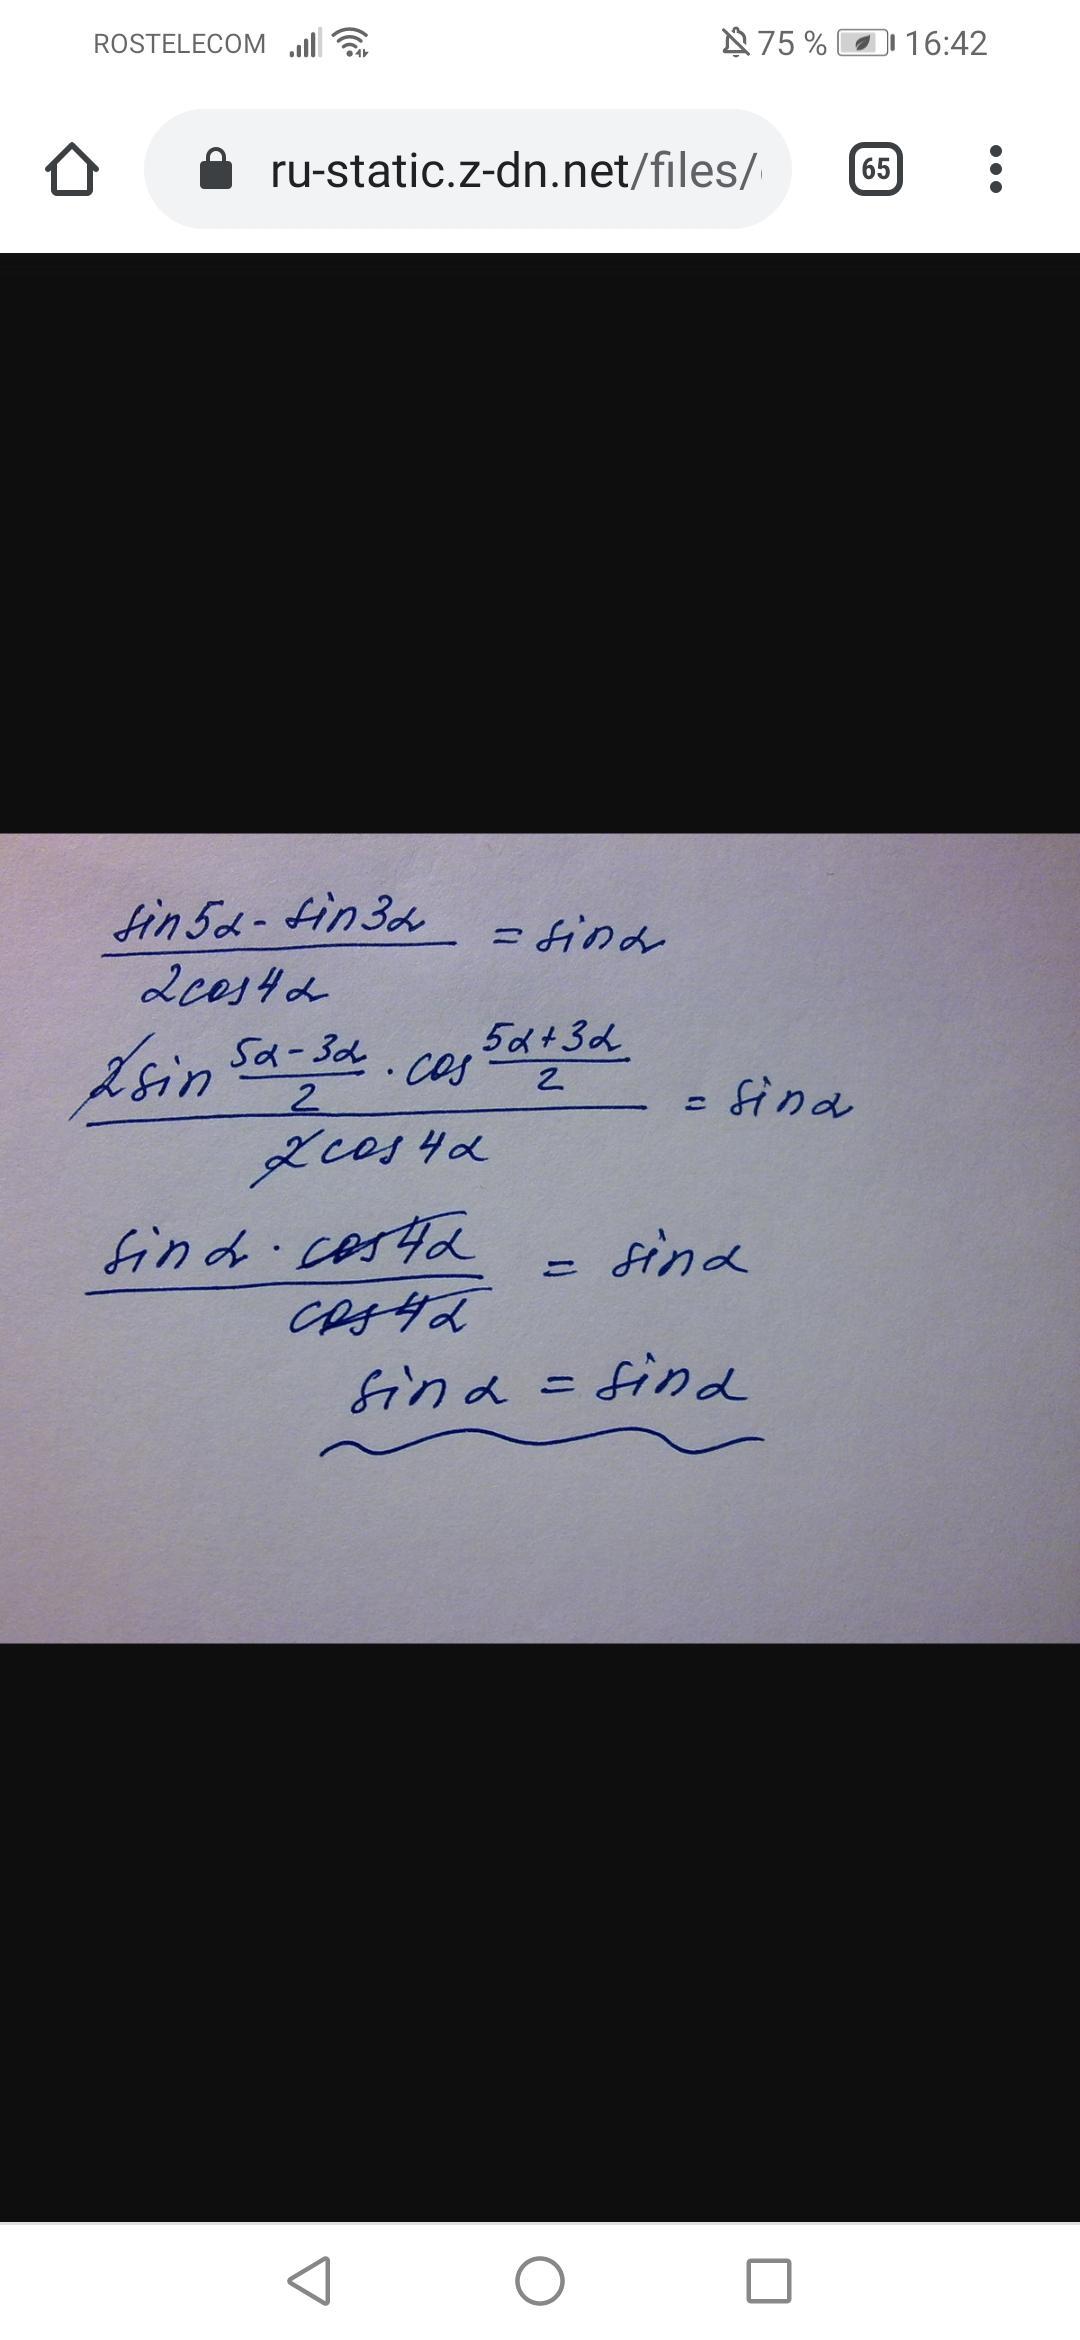 ROSTELECOM 75 % 16:42
ru-static.z-dn.net/files/ 65
sin5α - sin3α / 2cos4α = sinα
2sin (5α-3α)/2 · cos (5α+3α)/2 / 2cos4α = sinα
sinα · cos4α / cos4α = sinα
sinα = sinα